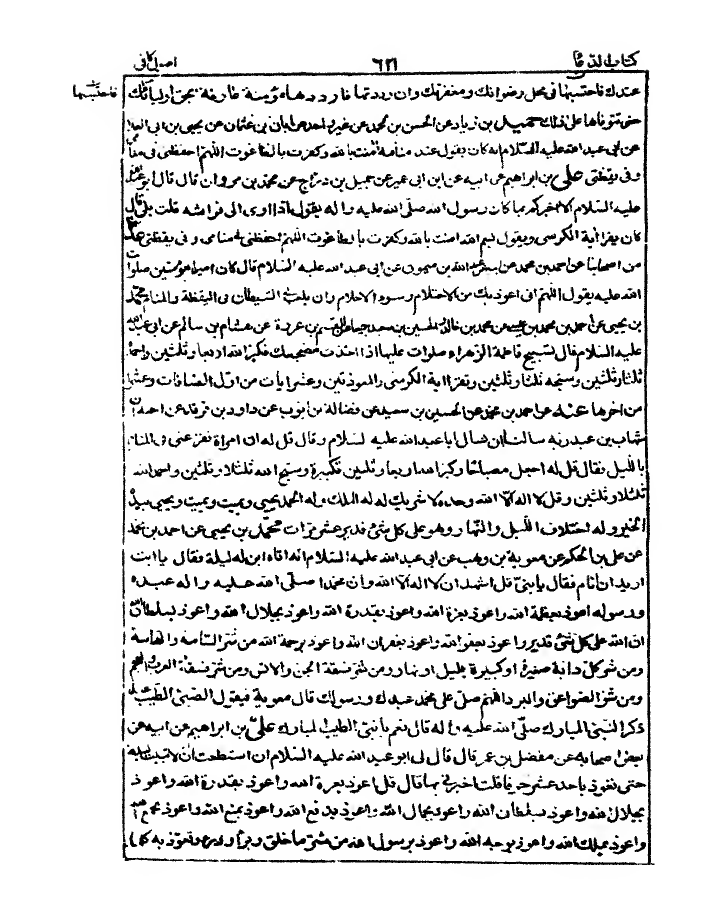 كتاب الدعا ٦٢١ اصول كافي
عندك فاحتسبها في محل رضوانك ومغفرتك وان رددتها فارددها مؤمنة عارفة بحق اوليائك فاحتبسها
حتى تتوفاها على ذلك حميد بن زياد عن الحسين بن محمد عن غير واحد عن ابان بن عثمان عن يحيى بن ابى العلا
عن ابى عبد الله عليه السلام انه كان يقول عند منامه امنت بالله وكفرت بالطاغوت اللهم احفظنى فى منامى
وفى يقظتى على بن ابراهيم عن ابيه عن ابن ابى عمير عن جميل بن دراج عن محمد بن مروان قال قال ابو عبد الله
عليه السلام الا اخبركم بما كان رسول الله صلى الله عليه واله يقول اذا اوى الى فراشه قلت بلى قال
كان يقرأ اية الكرسى ويقول بسم الله امنت بالله وكفرت بالطاغوت اللهم احفظنى فى منامى وفى يقظتى عدة
من اصحابنا عن احمد بن محمد عن ابيه عن عبد الله بن ميمون عن ابى عبد الله عليه السلام قال كان امير المؤمنين صلوات
الله عليه يقول اللهم انى اعوذ بك من الاحتلام وسوء الاحلام وان يلعب بى الشيطان فى اليقظة والمنام محمد
بن يحيى عن احمد بن محمد بن عيسى عن محمد بن خالد والحسين بن سعيد جميعا عن القسم بن عروة عن هشام بن سالم عن ابى عبد الله
عليه السلام قال تسبيح فاطمة الزهراء صلوات عليها اذا اخذت مضجعك فكبر الله اربعا وثلثين واحمده
ثلثا وثلثين وسبحه ثلثا وثلثين وتقرأ اية الكرسى والمعوذتين وعشر ايات من اول الصافات وعشرا
من اخرها عنه عن احمد بن محمد عن الحسين بن سعيد عن فضالة بن ايوب عن داود بن فرقد عن اخيه ان
شهاب بن عبد ربه سألنا ان نسال ابا عبد الله عليه السلام وقال قل له ان امراة تفزعنى فى المنام
بالليل فقال قل له اجعل مسباحا وكبر الله اربعا وثلثين تكبيرة وسبح الله ثلثا وثلثين واحمد الله
ثلثا وثلثين وقل لا اله الا الله وحده لا شريك له له الملك وله الحمد يحيى ويميت ويميت ويحيى بيده
الخير وله اختلاف الليل والنهار وهو على كل شئ قدير عشر مرات محمد بن يحيى عن احمد بن محمد
عن على بن الحكم عن معوية بن وهب عن ابى عبد الله عليه السلام انه اتاه ابن له ليلة فقال يا ابت
اريد ان انام فقال يا بنى قل اشهد ان لا اله الا الله وان محمدا صلى الله عليه واله عبده
ورسوله اعوذ بعظمة الله واعوذ بعزة الله واعوذ بقدرة الله واعوذ بجلال الله واعوذ بسلطان الله
ان الله على كل شئ قدير واعوذ بعفو الله واعوذ بغفران الله واعوذ برحمة الله من شر السامة والهامة
ومن شر كل دابة صغيرة او كبيرة بليل او نهار ومن شر فسقة الجن والانس ومن شر فسقة العرب والعجم
ومن شر الصواعق والبرد اللهم صل على محمد عبدك ورسولك قال معوية فيقول الصبى الطيب عند
ذكر النبى المبارك صلى الله عليه واله قال نعم يا بنى الطيب المبارك على بن ابراهيم عن ابيه عن
بعض اصحابه عن مفضل بن عمر قال قال لى ابو عبد الله عليه السلام ان استطعت ان لا تبيت ليلة
حتى تعوذ باحد عشر حرفا قلت اخبرنى بها قال قل اعوذ بعزة الله واعوذ بقدرة الله واعوذ
بجلال الله واعوذ بسلطان الله واعوذ بجمال الله واعوذ بدفع الله واعوذ بمنع الله واعوذ بجمع الله
واعوذ بملك الله واعوذ بوجه الله واعوذ برسول الله من شر ما خلق وبرأ وذرء وتعوذ به كلما